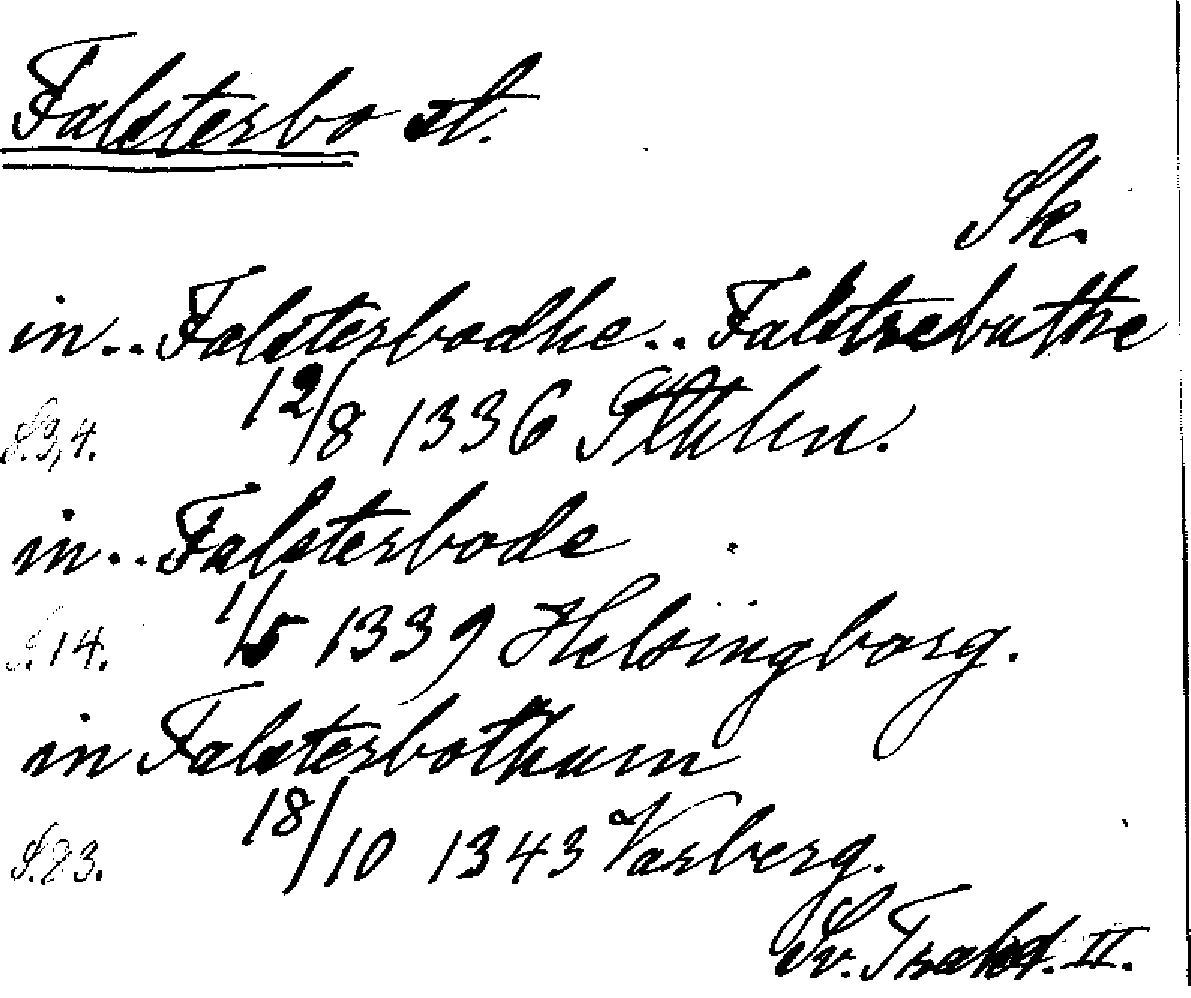 Falsterbo st.
Sk.
in.. Falsterbodhe.. Falstrebuthe
S.3,4. 12/8 1336 Sthlm.
in.. Falsterbode
S.14. 1/5 1339 Helsingborg.
in Falsterbothum
S.23. 18/10 1343 Varberg.
Sv. Trakt. II.